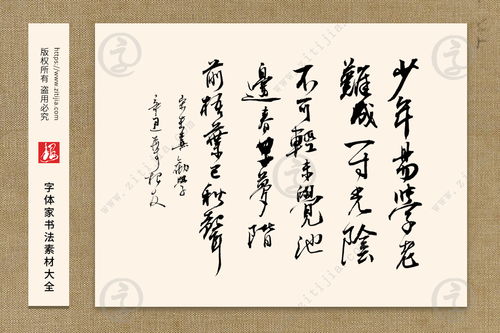 少年易學老
難成一寸光陰
不可輕未覺池
邊春草夢階
前梧葉已秋聲
宋朱熹勸學
辛丑
https://www.zitijia.com
版权所有 盗用必究
字体家书法素材大全